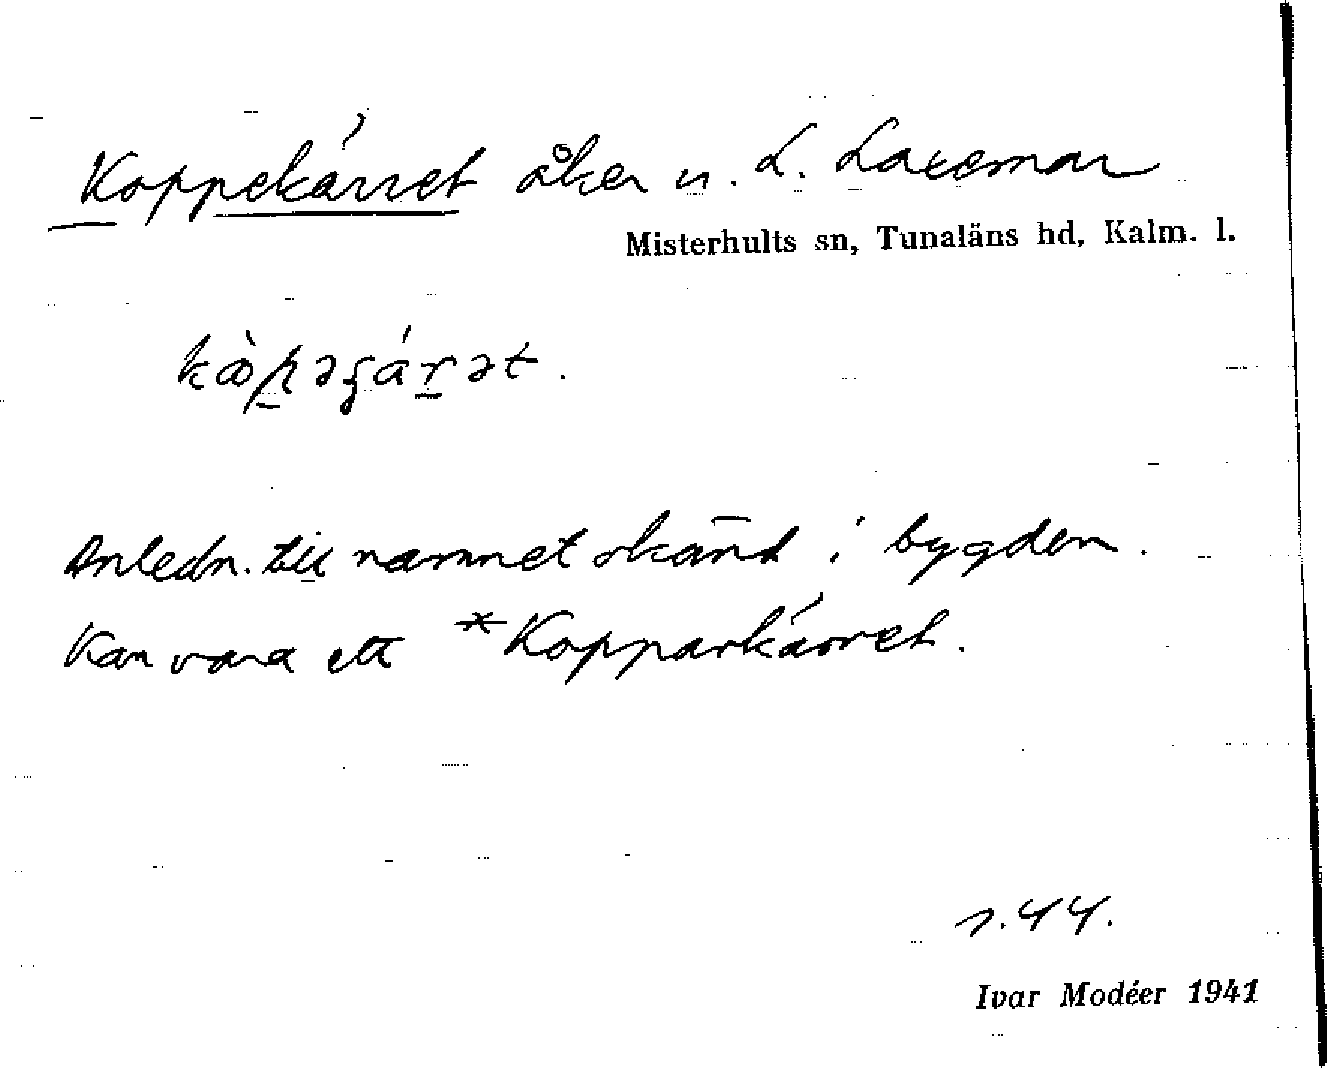 Koppekärret åker u. L. Laxemar
Misterhults sn, Tunaläns hd, Kalm. l.
Anledn. till namnet okänd i bygden.
Kan vara ett *Kopparkärret.
s. 44.
Ivar Modéer 1941